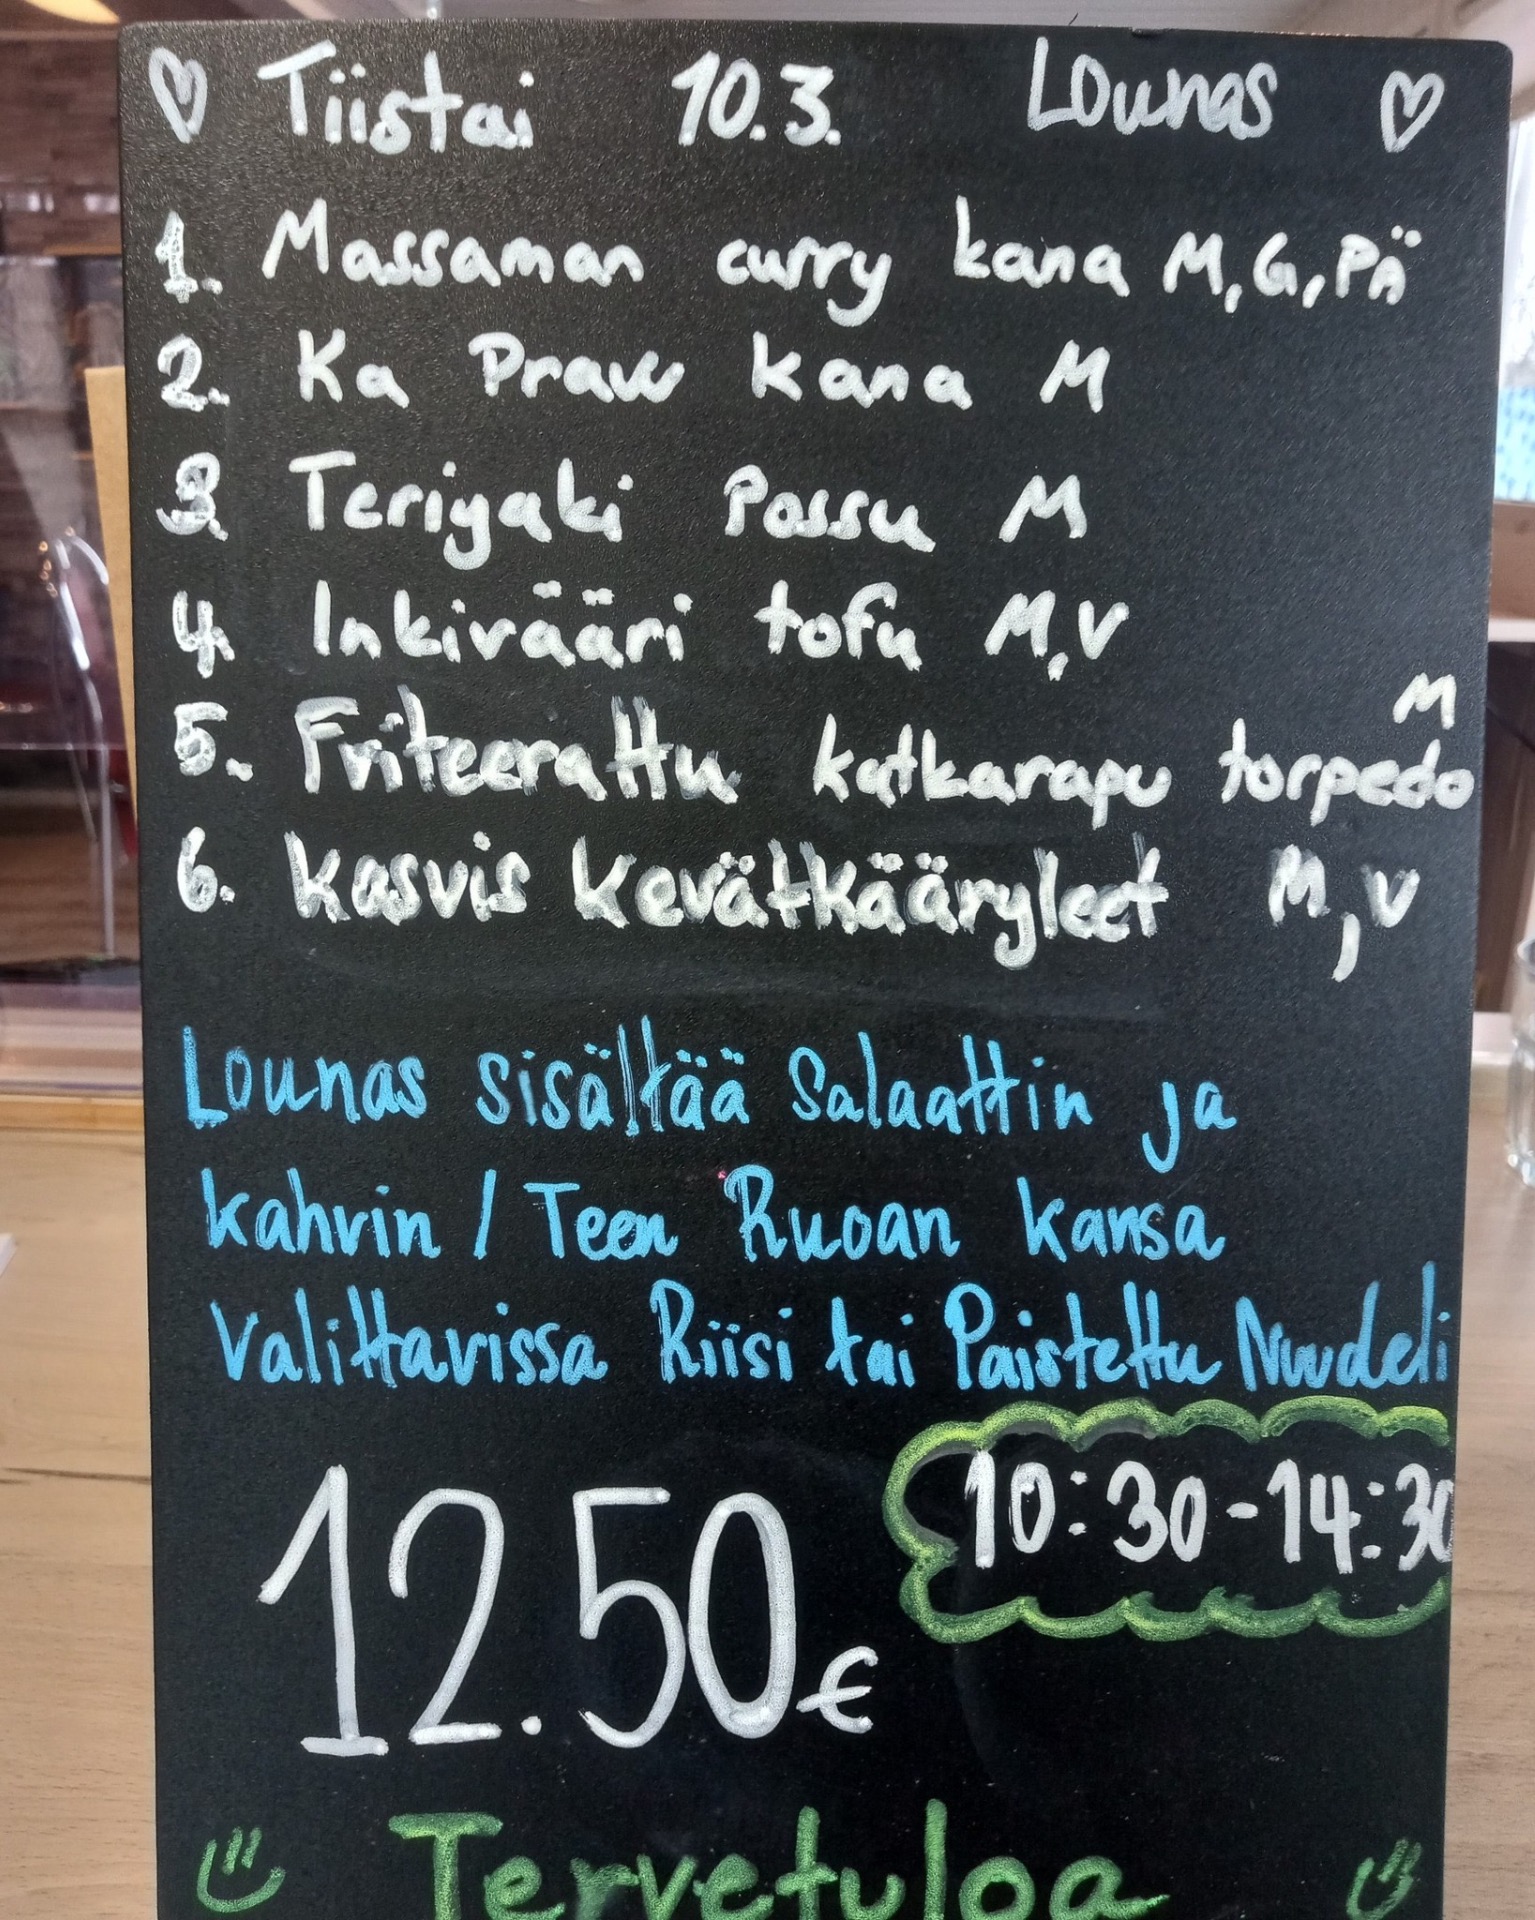 ♡ Tiistai 10.3. Lounas ♡
1. Massaman curry kana M, G, PÄ
2. Ka Praw kana M
3. Teriyaki Possu M
4. Inkivääri tofu M, V
5. Friteerattu katkarapu torpedo M
6. Kasvis kevätkääryleet M, V
Lounas sisältää Salaattin ja
kahvin / Teen Ruoan kansa
Valittavissa Riisi tai Paistettu Nuudeli
10:30-14:30
12.50€
Tervetuloa